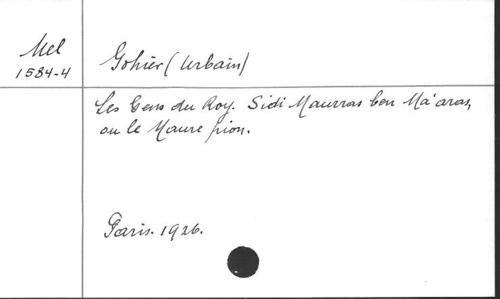 Mel
1584-4
Gohier (Urbain)
Les Gens du Roy. Sidi Maurras ben Ma'aras,
ou le Maure pion.
Paris. 1926.